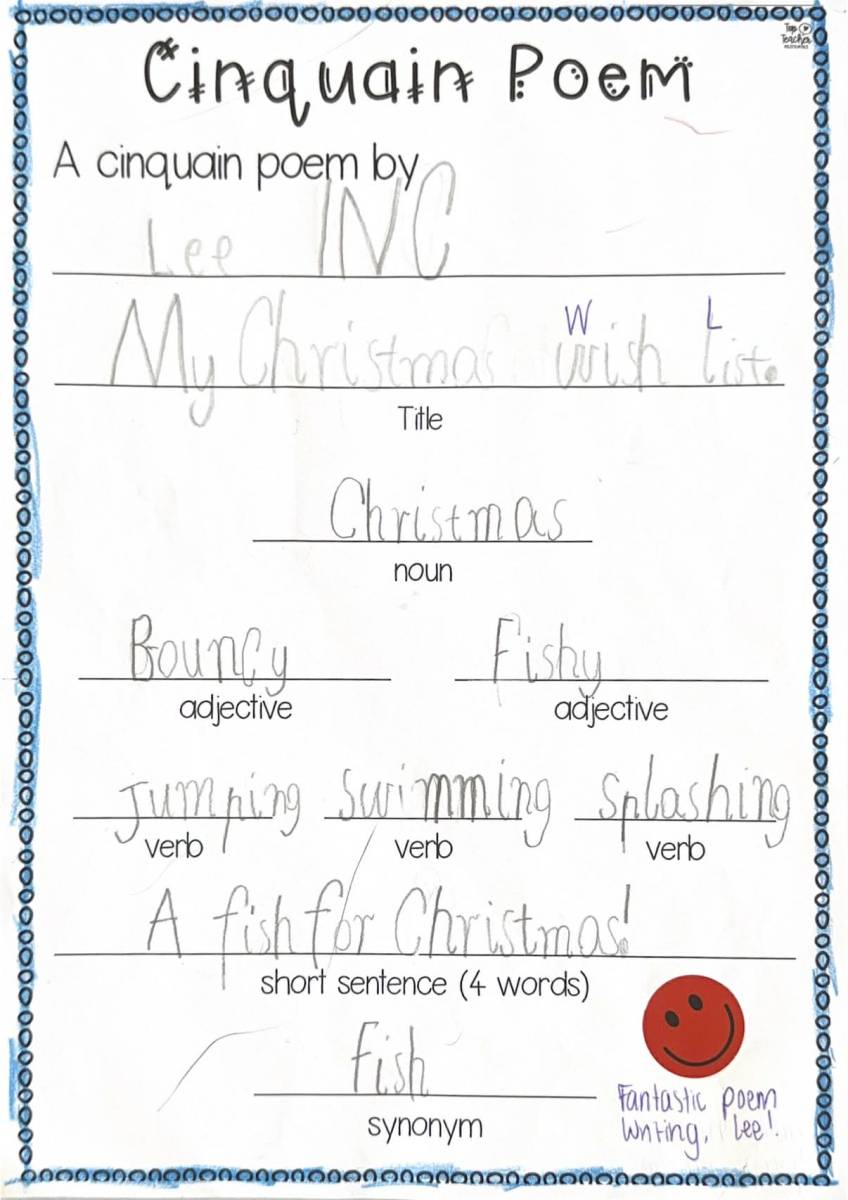 Top
Teacher
Cinquain Poem
A cinquain poem by
Lee INC
W L
My Christmas wish list.
Title
Christmas
noun
Bouncy Fishy
adjective adjective
Jumping swimming splashing
verb verb verb
A fish for Christmas!
short sentence (4 words)
fish
synonym
Fantastic poem
writing, Lee!